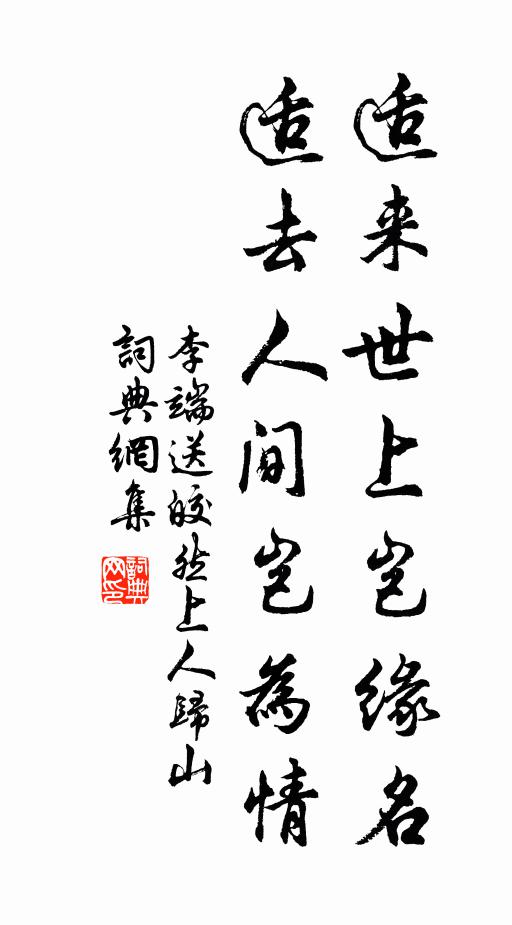 适来世上岂缘名
适去人间岂為情
李端送皎然上人歸山
詞典網集
詞典网印